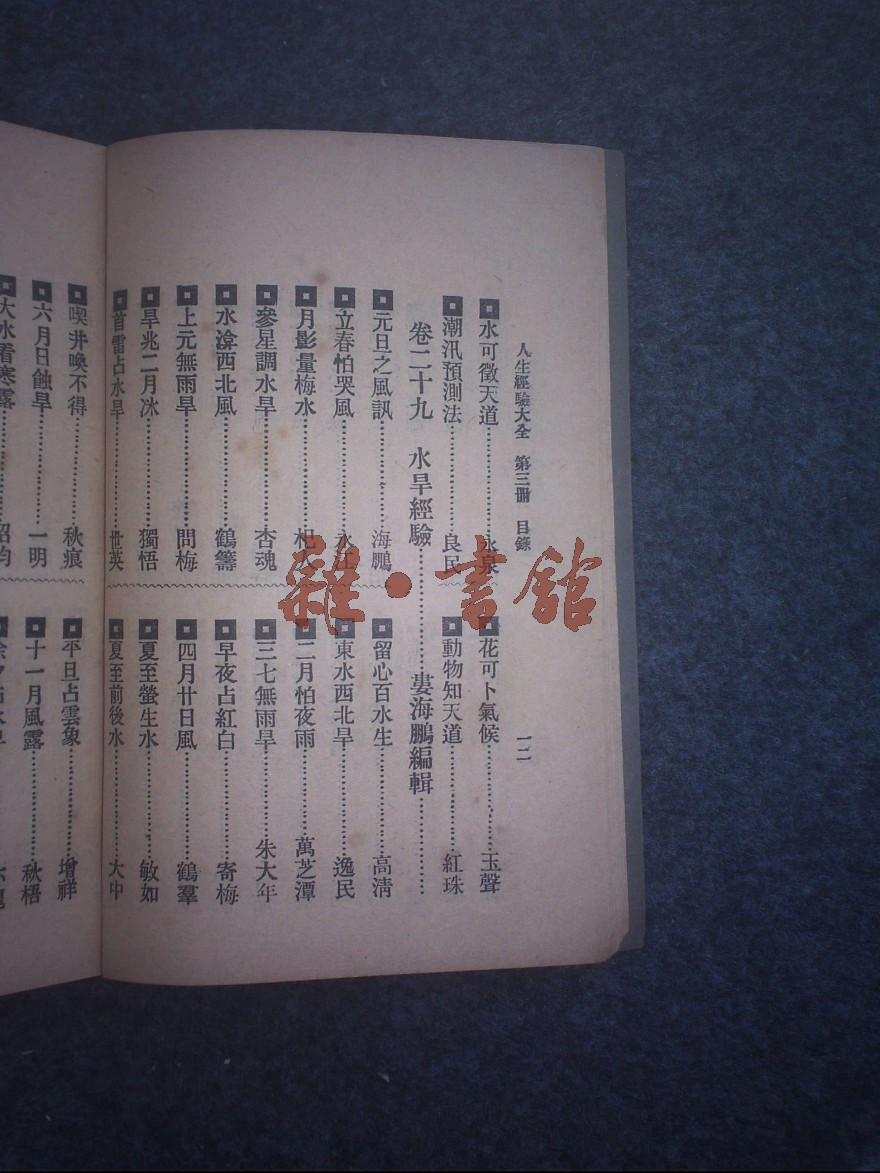 人生經驗大全 第三冊 目錄 一二
水可徵天道 永泉
花可卜氣候 玉聲
潮汛預測法 良民
動物知天道 紅珠
卷二十九 水旱經驗 婁海鵬編輯
元旦之風訊 海鵬
留心百水生 高淸
立春怕哭風 永江
東水西北旱 逸民
月影量梅水 杞人
二月怕夜雨 萬芝潭
參星調水旱 杏魂
三七無雨旱 朱大年
水渰西北風 鶴籌
早夜占紅白 寄梅
上元無雨旱 問梅
四月廿日風 鶴羣
旱兆二月冰 獨悟
夏至螢生水 敏如
首雷占水旱 世英
夏至前後水 大中
喫井喚不得 秋痕
平旦占雲象 增祥
六月日蝕旱 一明
十一月風露 秋梧
大水看寒露
雜·書館